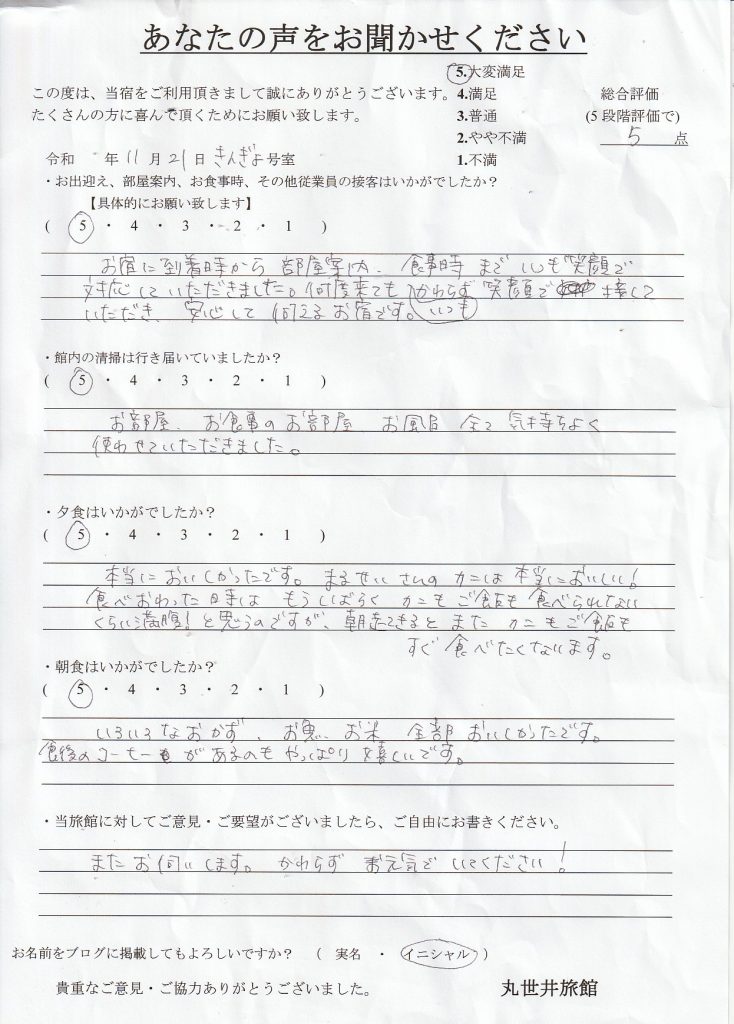 あなたの声をお聞かせください
5.大変満足
この度は、当宿をご利用頂きまして誠にありがとうございます。 4.満足 総合評価
たくさんの方に喜んで頂くためにお願い致します。 3.普通 (5段階評価で)
2.やや不満 5 点
令和 年11月21日 きんぎょ号室 1.不満
・お出迎え、部屋案内、お食事時、その他従業員の接客はいかがでしたか?
【具体的にお願い致します】
( 5 ・ 4 ・ 3 ・ 2 ・ 1 )
お宿に到着時から 部屋案内、食事時まで いつも笑顔で
対応していただきました。何度来ても かわらず笑顔で 接して
いただき、安心して 伺えるお宿です。 いつも
・館内の清掃は行き届いていましたか?
( 5 ・ 4 ・ 3 ・ 2 ・ 1 )
お部屋、お食事のお部屋、お風呂 全て 気持ちよく
使わせていただきました。
・夕食はいかがでしたか?
( 5 ・ 4 ・ 3 ・ 2 ・ 1 )
本当においしかったです。まるせいさんの カニは 本当においしい!
食べおわった時は もうしばらく カニも ご飯も 食べられない
くらい満腹!と思うのですが、朝起きると また カニも ご飯も
すぐ 食べたくなります。
・朝食はいかがでしたか?
( 5 ・ 4 ・ 3 ・ 2 ・ 1 )
いろいろなおかず、お魚、お米 全部 おいしかったです。
食後のコーヒーがあるのも やっぱり 嬉しいです。
・当旅館に対してご意見・ご要望がございましたら、ご自由にお書きください。
またお伺いします。かわらず お元気で いてください!
お名前をブログに掲載してもよろしいですか? ( 実名 ・ イニシャル )
貴重なご意見・ご協力ありがとうございました。 丸世井旅館